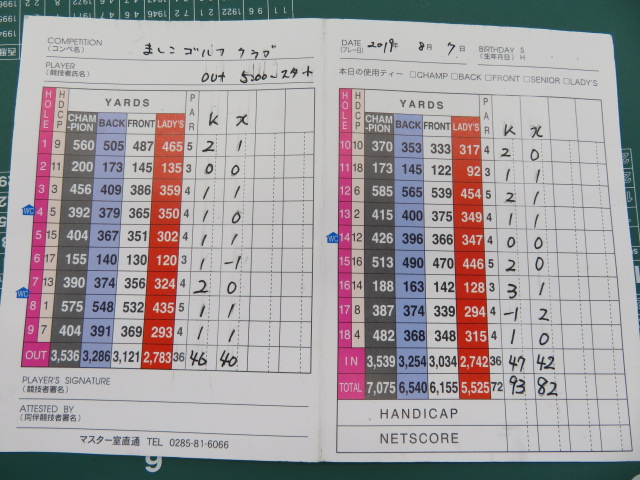 COMPETITION
(コンペ名)
ましこゴルフクラブ
PLAYER
(競技者氏名)
OUT 5:00〜スタート
HOLE HDCP YARDS PAR K X
CHAMPION BACK FRONT LADY'S
1 9 560 505 487 465 5 2 1
2 11 200 173 145 135 3 0 0
3 3 456 409 386 359 4 1 1
WC 4 5 392 379 365 350 4 1 0
5 15 404 367 351 302 4 1 1
6 17 155 140 130 120 3 1 -1
WC 7 13 390 374 356 324 4 2 0
8 1 575 548 532 435 5 1 1
9 7 404 391 369 293 4 1 1
OUT 3,536 3,286 3,121 2,783 36 46 40
PLAYER'S SIGNATURE
(競技者署名)
ATTESTED BY
(同伴競技者署名)
マスター室直通 TEL 0285-81-6066
9
DATE 2019年 8月 7日 BIRTHDAY S
(プレー日) (生年月日) H
本日の使用ティー □CHAMP □BACK □FRONT □SENIOR □LADY'S
HOLE HDCP YARDS PAR K X
CHAMPION BACK FRONT LADY'S
10 10 370 353 333 317 4 2 0
11 18 173 145 122 92 3 1 1
12 6 585 565 539 454 5 2 1
13 2 415 400 375 349 4 1 1
WC 14 12 426 396 366 347 4 0 0
15 16 513 490 470 446 5 2 0
16 14 188 163 142 128 3 3 1
17 8 387 374 339 294 4 -1 2
18 4 482 368 348 315 4 1 0
IN 3,539 3,254 3,034 2,742 36 47 42
TOTAL 7,075 6,540 6,155 5,525 72 93 82
HANDICAP
NETSCORE